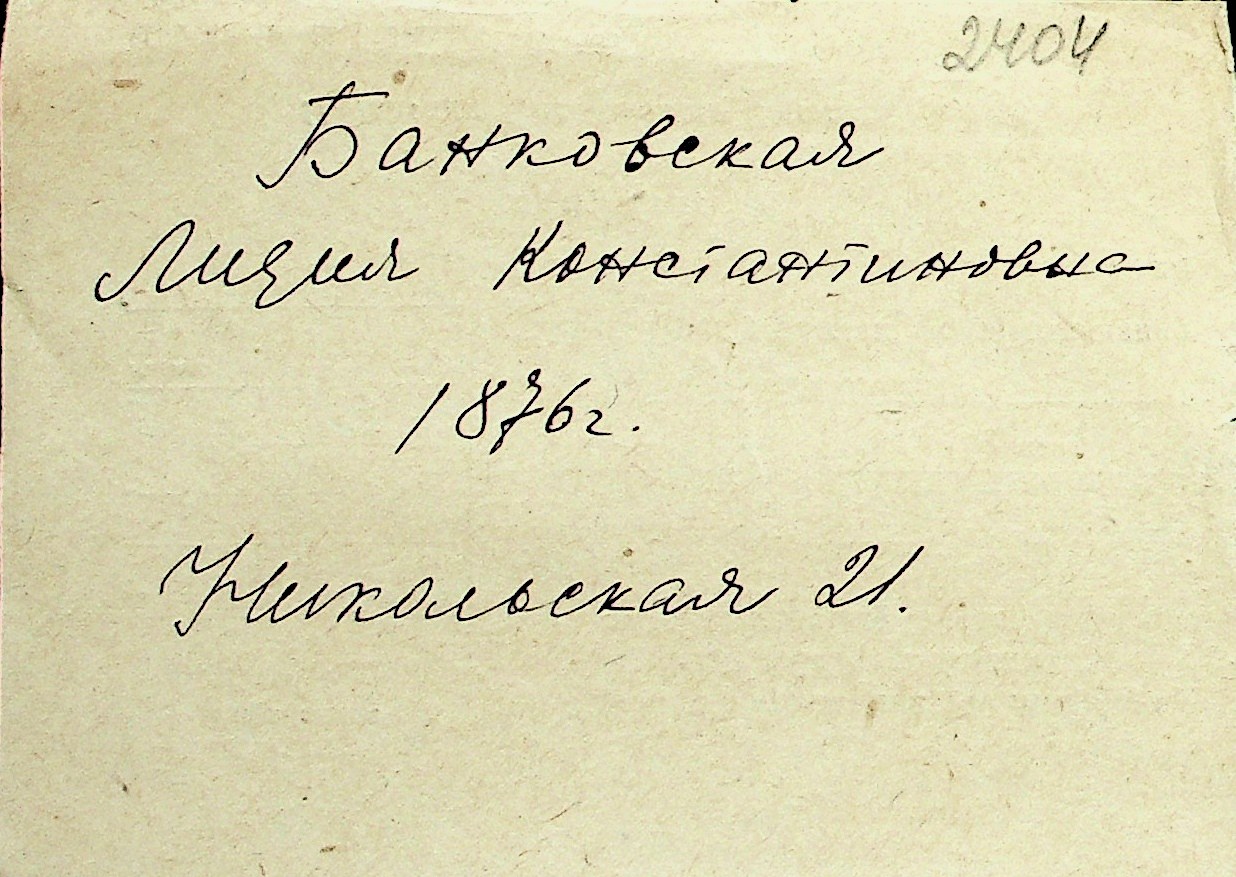 2404
Банковская
Лидия Константиновна
1876г.
Никольская 21.